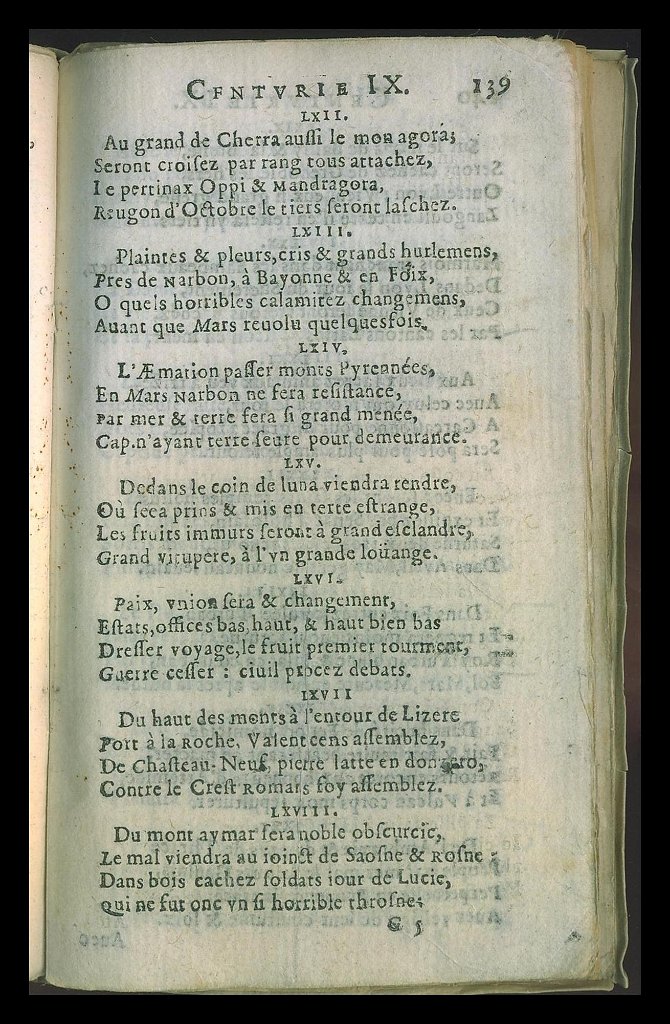 CFNTVRIE IX. 139
LXII.
Au grand de Cherra aussi le mon agora;
Seront croisez par rang tous attachez,
Le pertinax Oppi & Mandragora,
Rougon d'Octobre le tiers seront laschez.
LXIII.
Plaintes & pleurs, cris & grands hurlemens,
Pres de Narbon, à Bayonne & en Foix,
O quels horribles calamitez changemens,
Auant que Mars reuolu quelquesfois.
LXIV.
L'Æmation passer monts Pyrennées,
En Mars Narbon ne fera resistance,
Par mer & terre fera si grand menée,
Cap. n'ayant terre seure pour demeurance.
LXV.
Dedans le coin de luna viendra rendre,
Où seea prins & mis en terte estrange,
Les fruits immurs seront à grand esclandre,
Grand vitupere, à l'vn grande loüange.
LXVI.
Paix, vnion sera & changement,
Estats, offices bas, haut, & haut bien bas
Dresser voyage, le fruit premier tourment,
Guerre cesser : ciuil procez debats.
LXVII
Du haut des ments à l'entour de Lizere
Port à la Roche, Valent cens assemblez,
De Chasteau-Neuf, pierre latte en
Contre le Crest Romars foy assemblez.
LXVIII.
Du mont aymar sera noble obscurcie,
Le mal viendra au ioinct de Saosne & Rosne :
Dans bois cachez soldats iour de Lucie,
qui ne fut onc vn si horrible throsne;
G 5